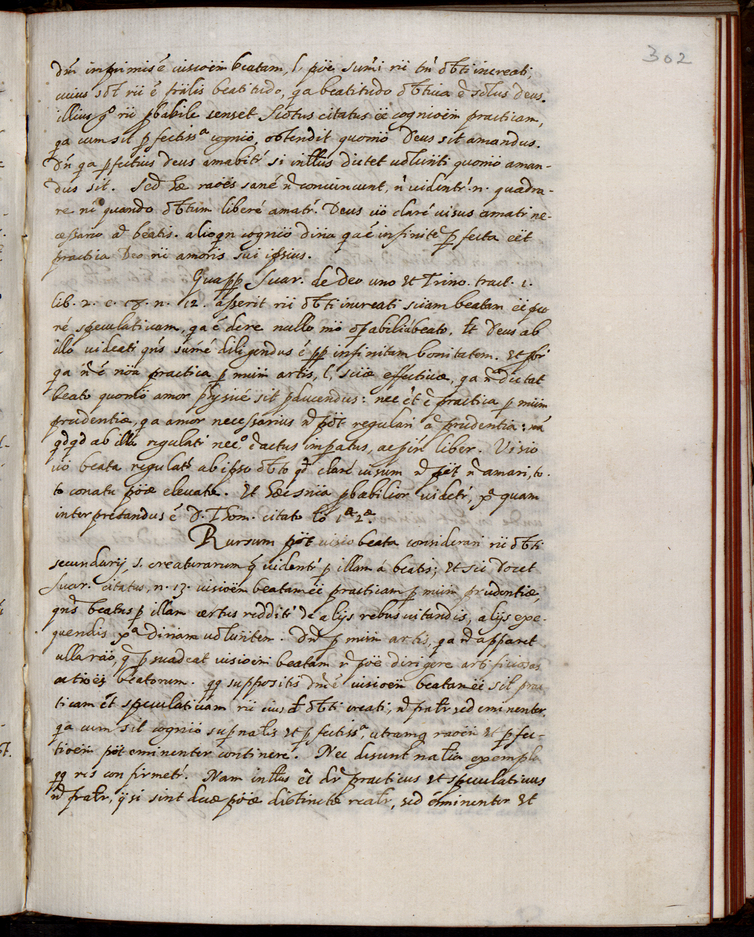 302
dm̃ inprimis ẽ visioẽm beatam, l põe sumi rñ tñ õbti increati,
cuius sõt rñ ẽ trãlis beatitudo, qa beatitudo õbtiva ẽ solus Deus.
illius gº rñ pbabile senset Scotus citatus eẽ cognioẽm practicam,
qa cum sit pfectissª cognio, ostendit quomõ Deus sit amandus.
Dñ qa pfectius Deus amabitr̃ si intllus dictet volunti quomõ aman-
dus sit. Sed hæ raoẽs sanè ñ convincunt, ñ videntr̃ .n. quadra-
re ni quando õbtum liberé amatr̃. Deus vo claré visus amatr ne-
cessario a beatis. alioqn cognio dina qa ẽ infinité pfecta eẽt
practica Deo rñ amoris sui ipsius.
Quapp Suar. de Deo uno et Trino. tract. 1.
lib. 2. c. 18. n. 12. asserit rñ õbti increati sciam beatam eẽ pu-
ré speculativam, qa ẽ de re nullo mõ opabili à beato. Et Deus ab
illo videatr qñs sumé diligendus ẽ pp infinitam bonitatem. Et pbr
qa ñ ẽ nõa practica p muim artis, l sciæ effectivæ, qa ñ dictat
beato quomõ amor physicé sit pducendus: nec ẽt ẽ practica p muim
prudentiæ, qa amor necessarius ñ põt regulari à prudentia: nã
qdqd ab illa regulatr necº ẽ actus impatus, ac pin liber. Visio
vo beata regulatr ab ipso õbto qd claré visum ñ põt ñ amari, to-
to conatu põæ elevatæ. Et hæc snia pbabilior videtr̃, xª quam
interpretandus ẽ D. Thom. citato lõ 1ª 2æ.
Rursum põt visio beata considerari rñ õbti
secundarij, s. creaturarum q videntr̃ p illam à beatis; et sic docet
Suar. citatus, n. 13. visioẽm beatam eẽ practicam p muim prudentiæ,
qñs beatus p illam certus redditr̃ de alijs rebus vitandis, alijs exe-
quendis xª dinam voluntem. Dñ p muim artis, qa ñ apparet
ulla rão, q psuadeat visioẽm beatam ñ põe dirigere artificiosas
actioẽs beatorum. qq suppositis dm̃ ẽ visioẽm beatam eẽ sil prac-
ticam et speculativam rñ eius õbti creati, ñ fralr sed eminenter,
qa cum sit cognio supnalis et pfectissª, utramq raoẽm et pfec-
tioẽm põt eminenter continere. Nec desunt nalia exempla
qq res confirmetr̃. Nam intllus ẽt dr practicus et speculativus
ñ fralr, qsi sint duæ põæ distinctæ realr, sed eminenter et